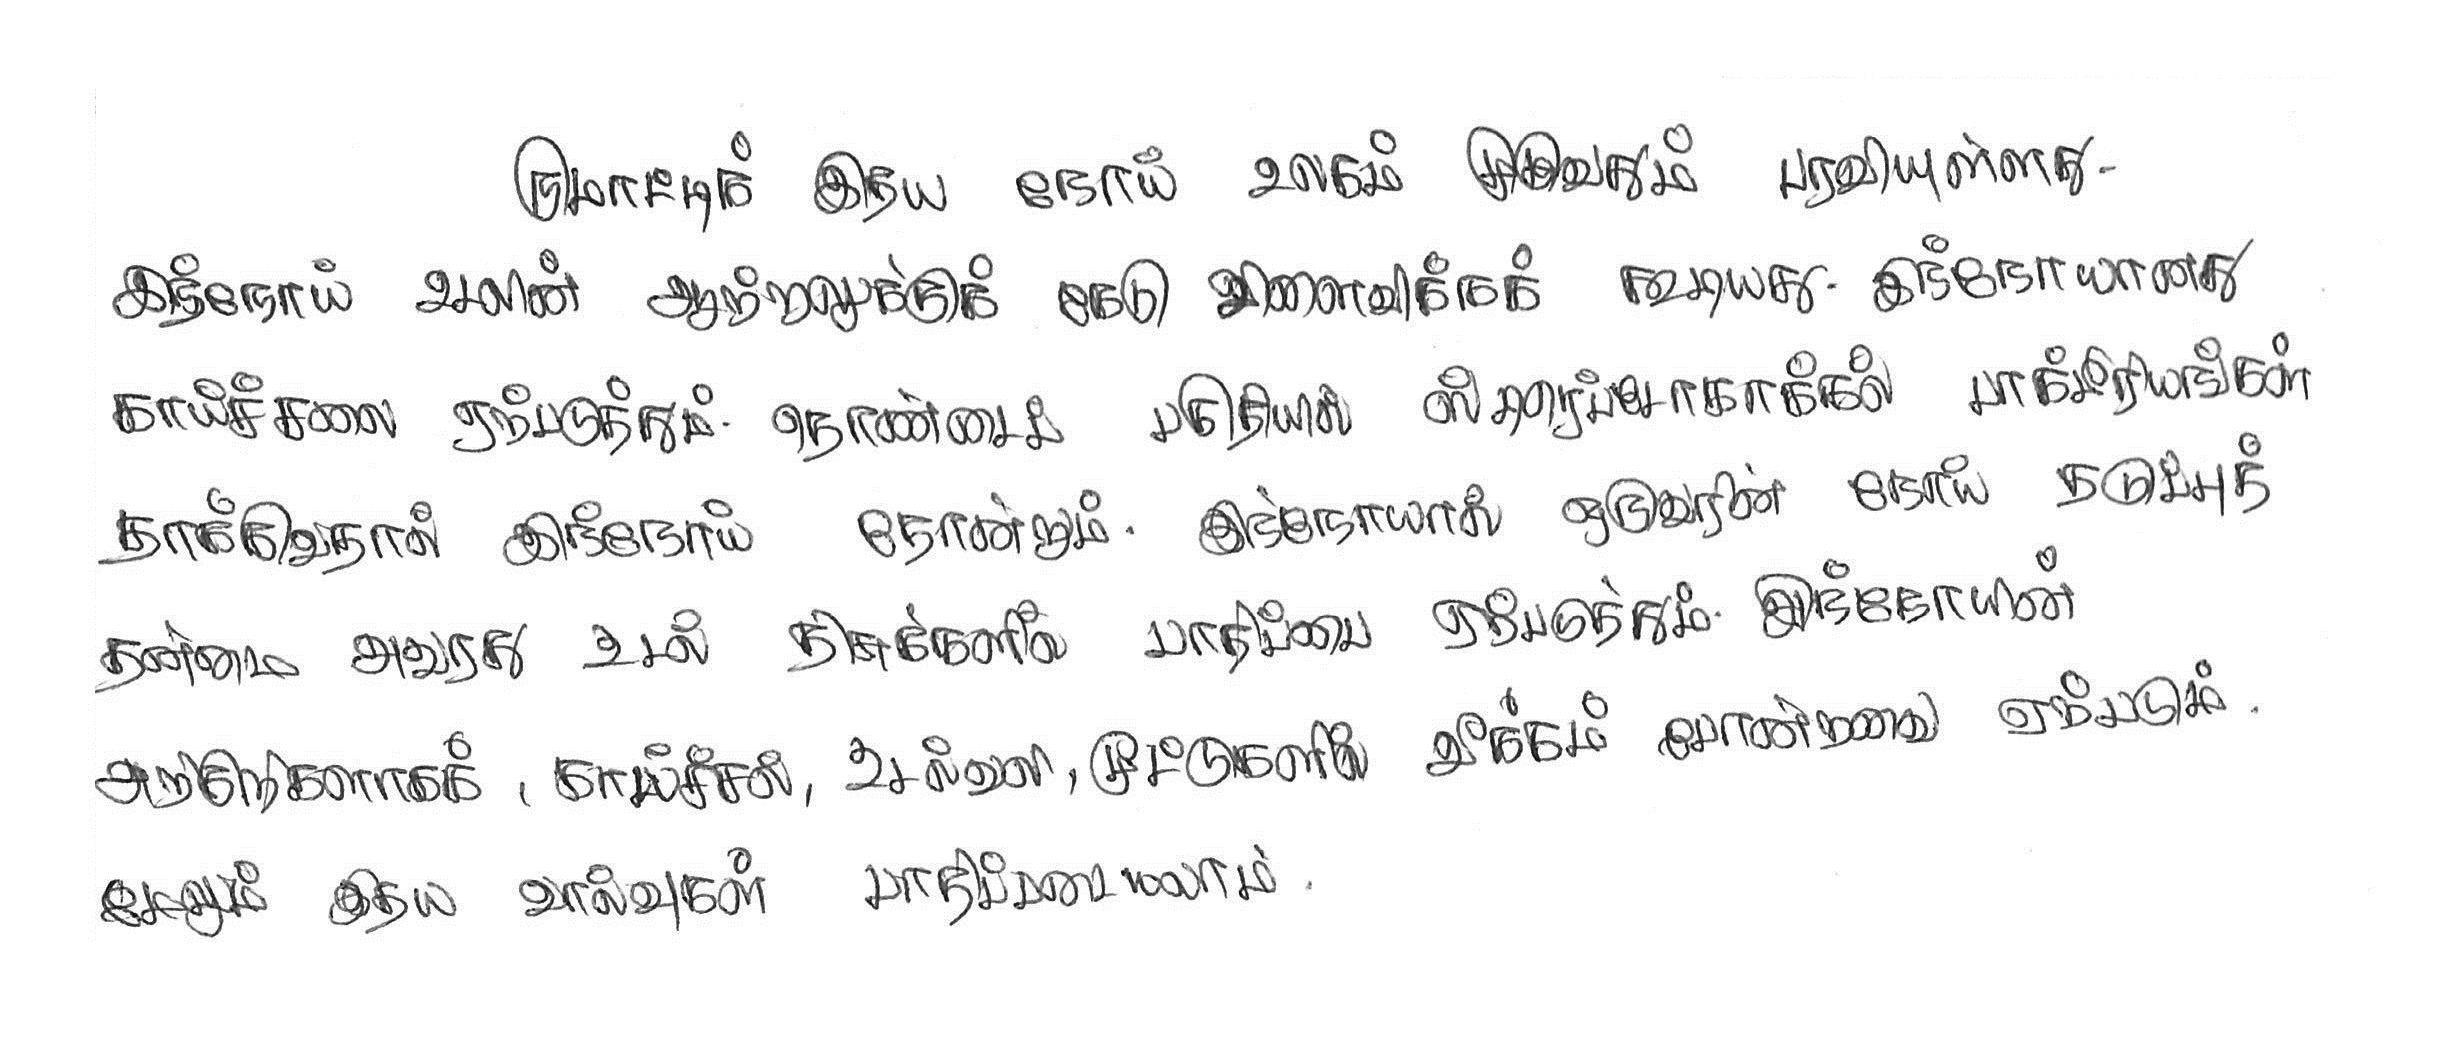 ருமாட்டிக் இதய நோய் உலகம் முழுவதும் பரவியுள்ளது.
இந்நோய் உடலின் ஆற்றலுக்குக் கேடு விளைவிக்கக் கூடியது. இந்நோயானது
காய்ச்சலை ஏற்படுத்தும். தொண்டைப் பகுதியில் ஸ்ட்ரெப்டோகாக்கல் பாக்டீரியங்கள்
தாக்குவதால் இந்நோய் தோன்றும். இந்நோயால் ஒருவரின் நோய் தடுப்புத்
தன்மை அவரது உடல் திசுக்களில் பாதிப்பை ஏற்படுத்தும். இந்நோயின்
அறிகுறிகளாகக், காய்ச்சல், உடல்வலி, மூட்டுகளில் வீக்கம் போன்றவை ஏற்படும்.
மேலும் இதய வால்வுகள் பாதிப்படையலாம்.